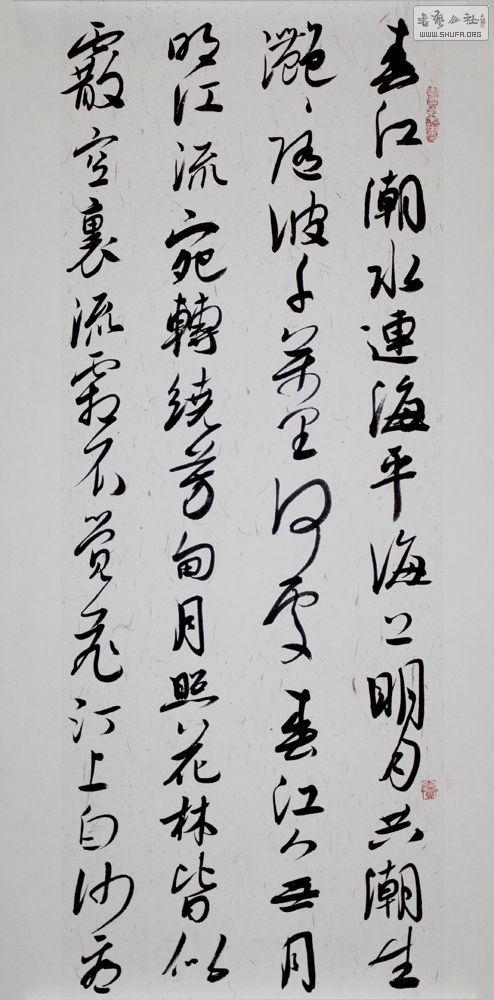 春江潮水連海平海上明月共潮生
灩〻随波千萬里何處春江無月
明江流宛轉繞芳甸月照花林皆似
霰空裏流霜不覺飛汀上白沙看
书艺公社
WWW.SHUFA.ORG